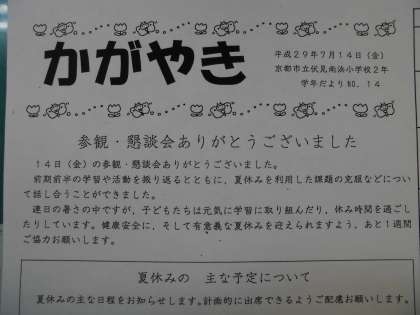 かがやき
平成29年7月14日(金)
京都市立伏見南浜小学校2年
学年だよりNO.14
参観・懇談会ありがとうございました
14日(金)の参観・懇談会ありがとうございました。
前期前半の学習や活動を振り返るとともに、夏休みを利用した課題の克服などについ
て話し合うことができました。
連日の暑さの中ですが、子どもたちは元気に学習に取り組んだり、休み時間を過ごし
たりしています。健康安全に、そして有意義な夏休みを迎えられますよう、あと1週間
ご協力お願いします。
夏休みの 主な予定について
夏休みの主な日程をお知らせします。計画的に出席できるようご配慮お願いします。